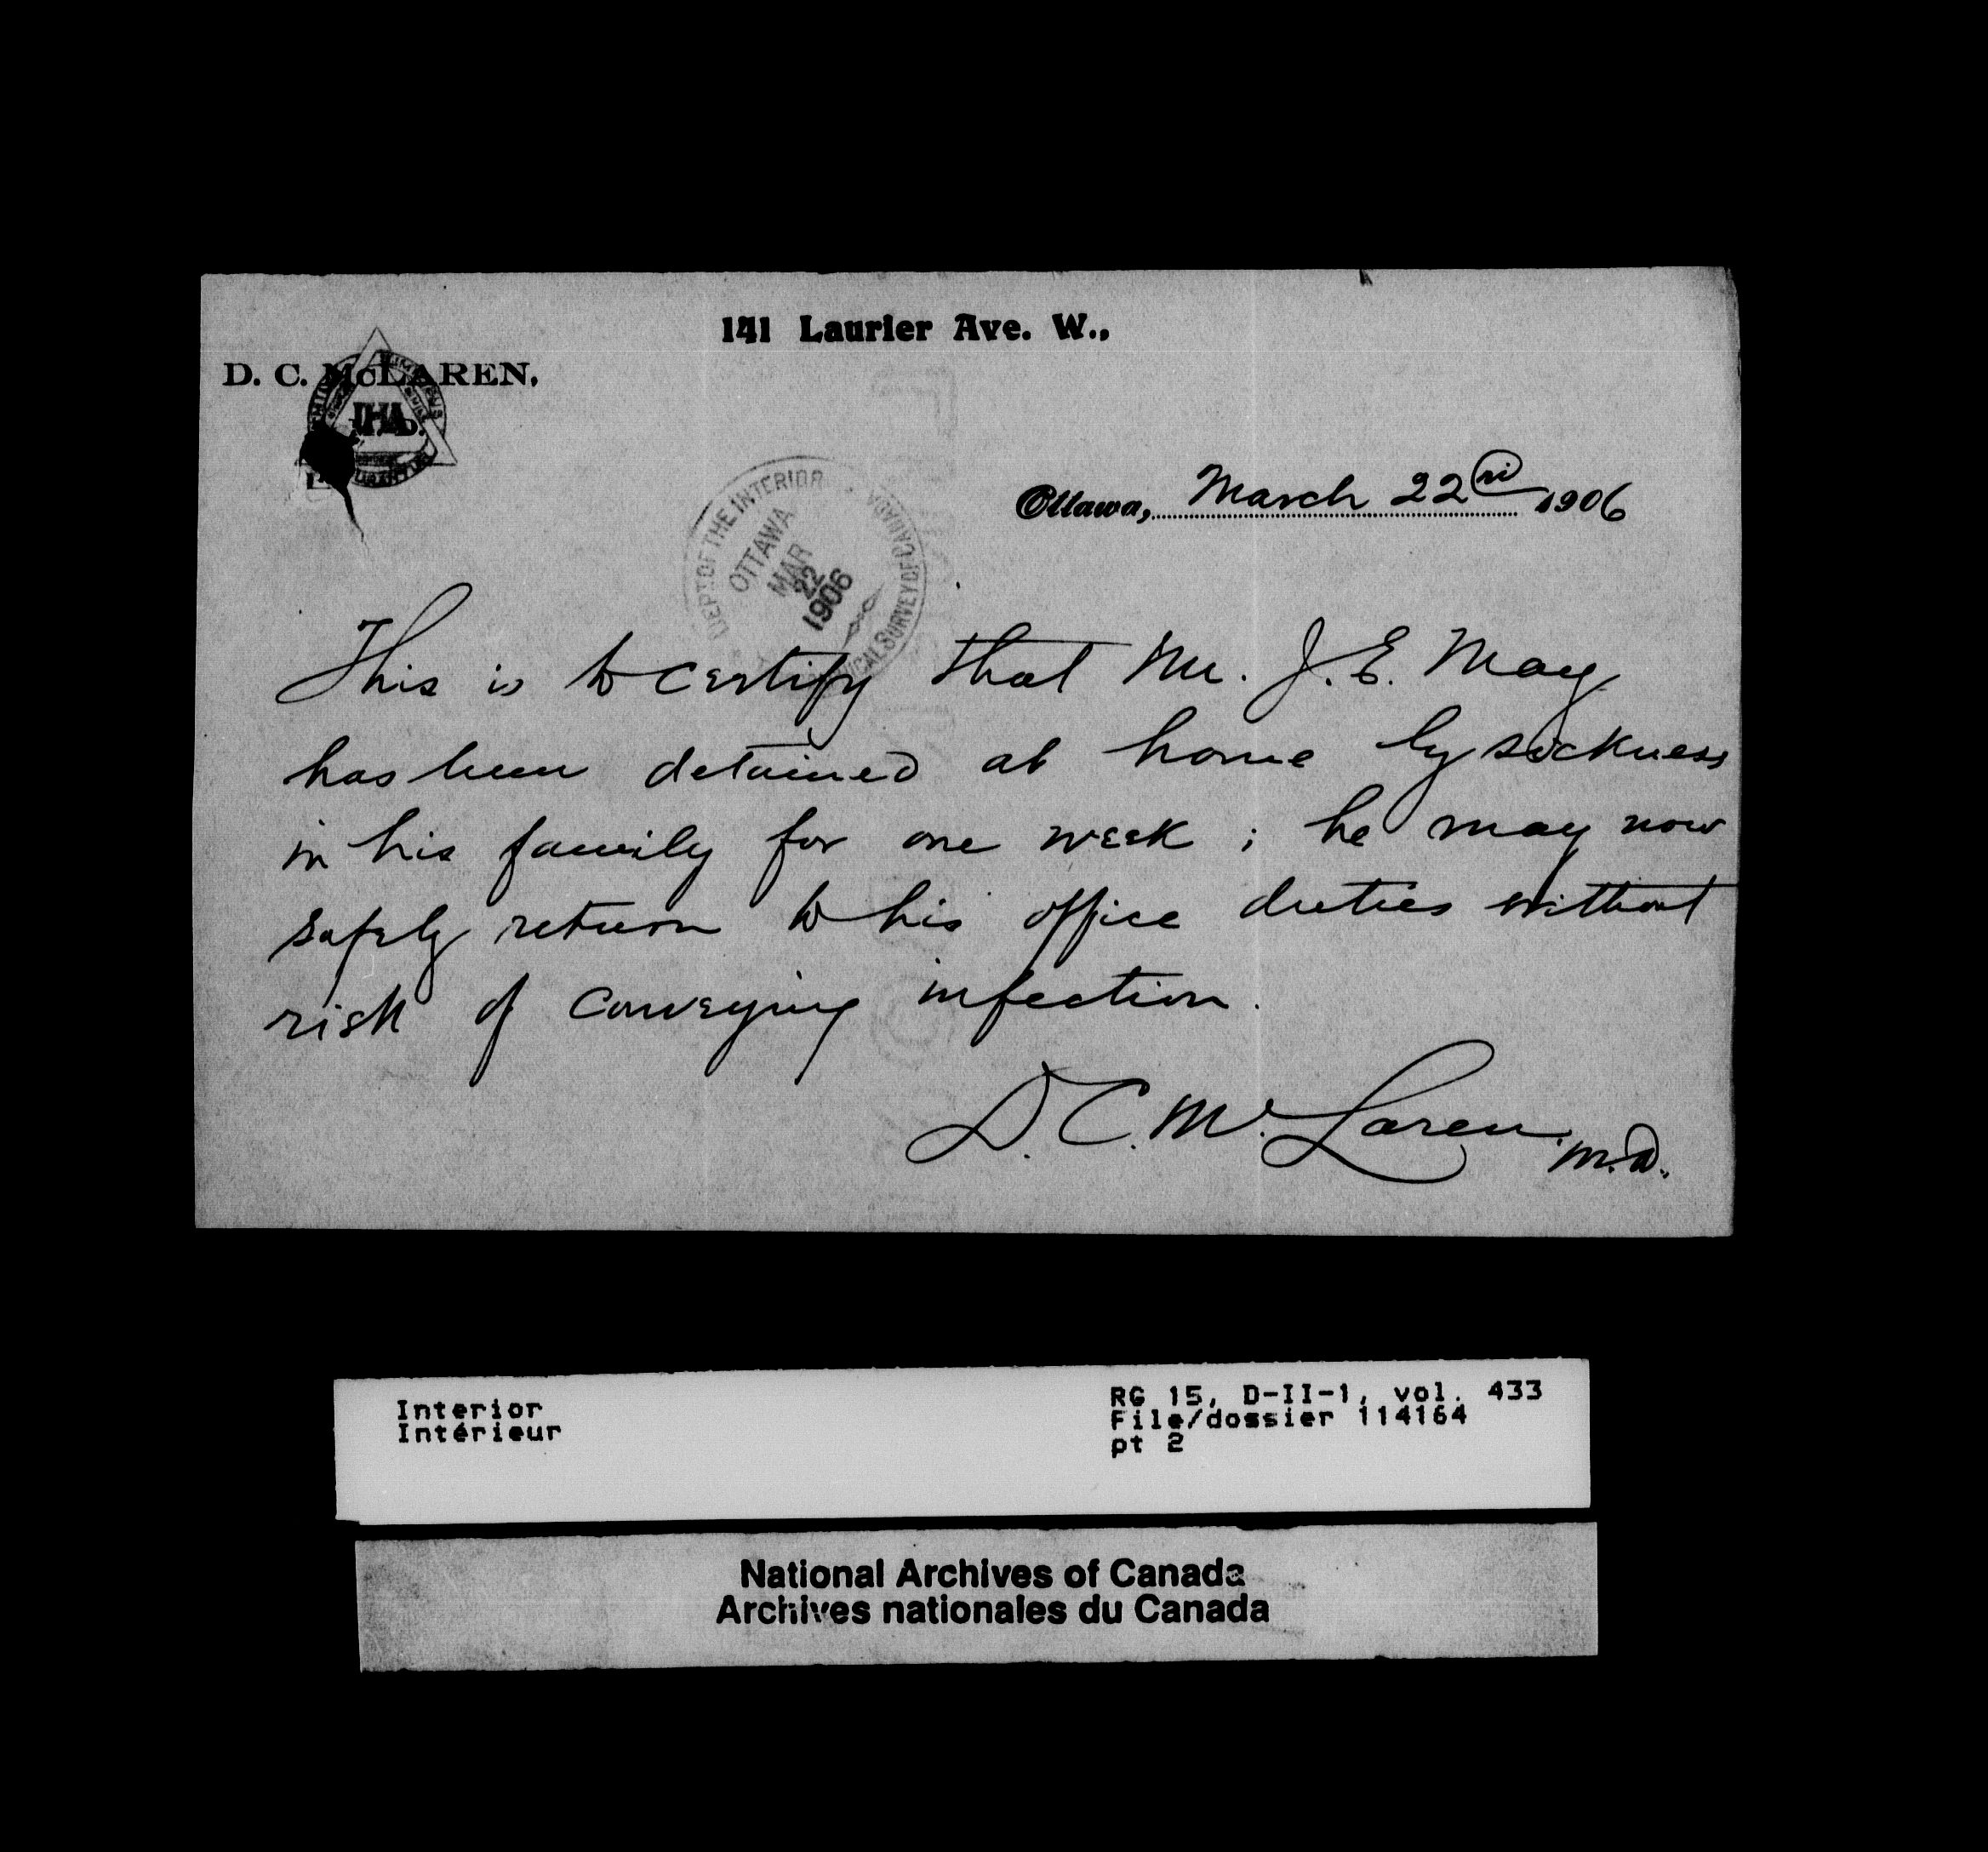 141 Laurier Ave. W.,
D. C. McLAREN,
IHA
Ottawa, March 22nd 1906
DEPT OF THE INTERIOR
SURVEY OF CANADA
OTTAWA
MAR
22
1906
This is to certify that Mr. J. E. May
has been detained at home by sickness
in his family for one week ; he may now
safely return to his office duties without
risk of conveying infection.
D. C. McLaren M.D.
Interior
Intérieur
RG 15, D-II-1, vol. 433
File/dossier 114164
pt 2
National Archives of Canada
Archives nationales du Canada